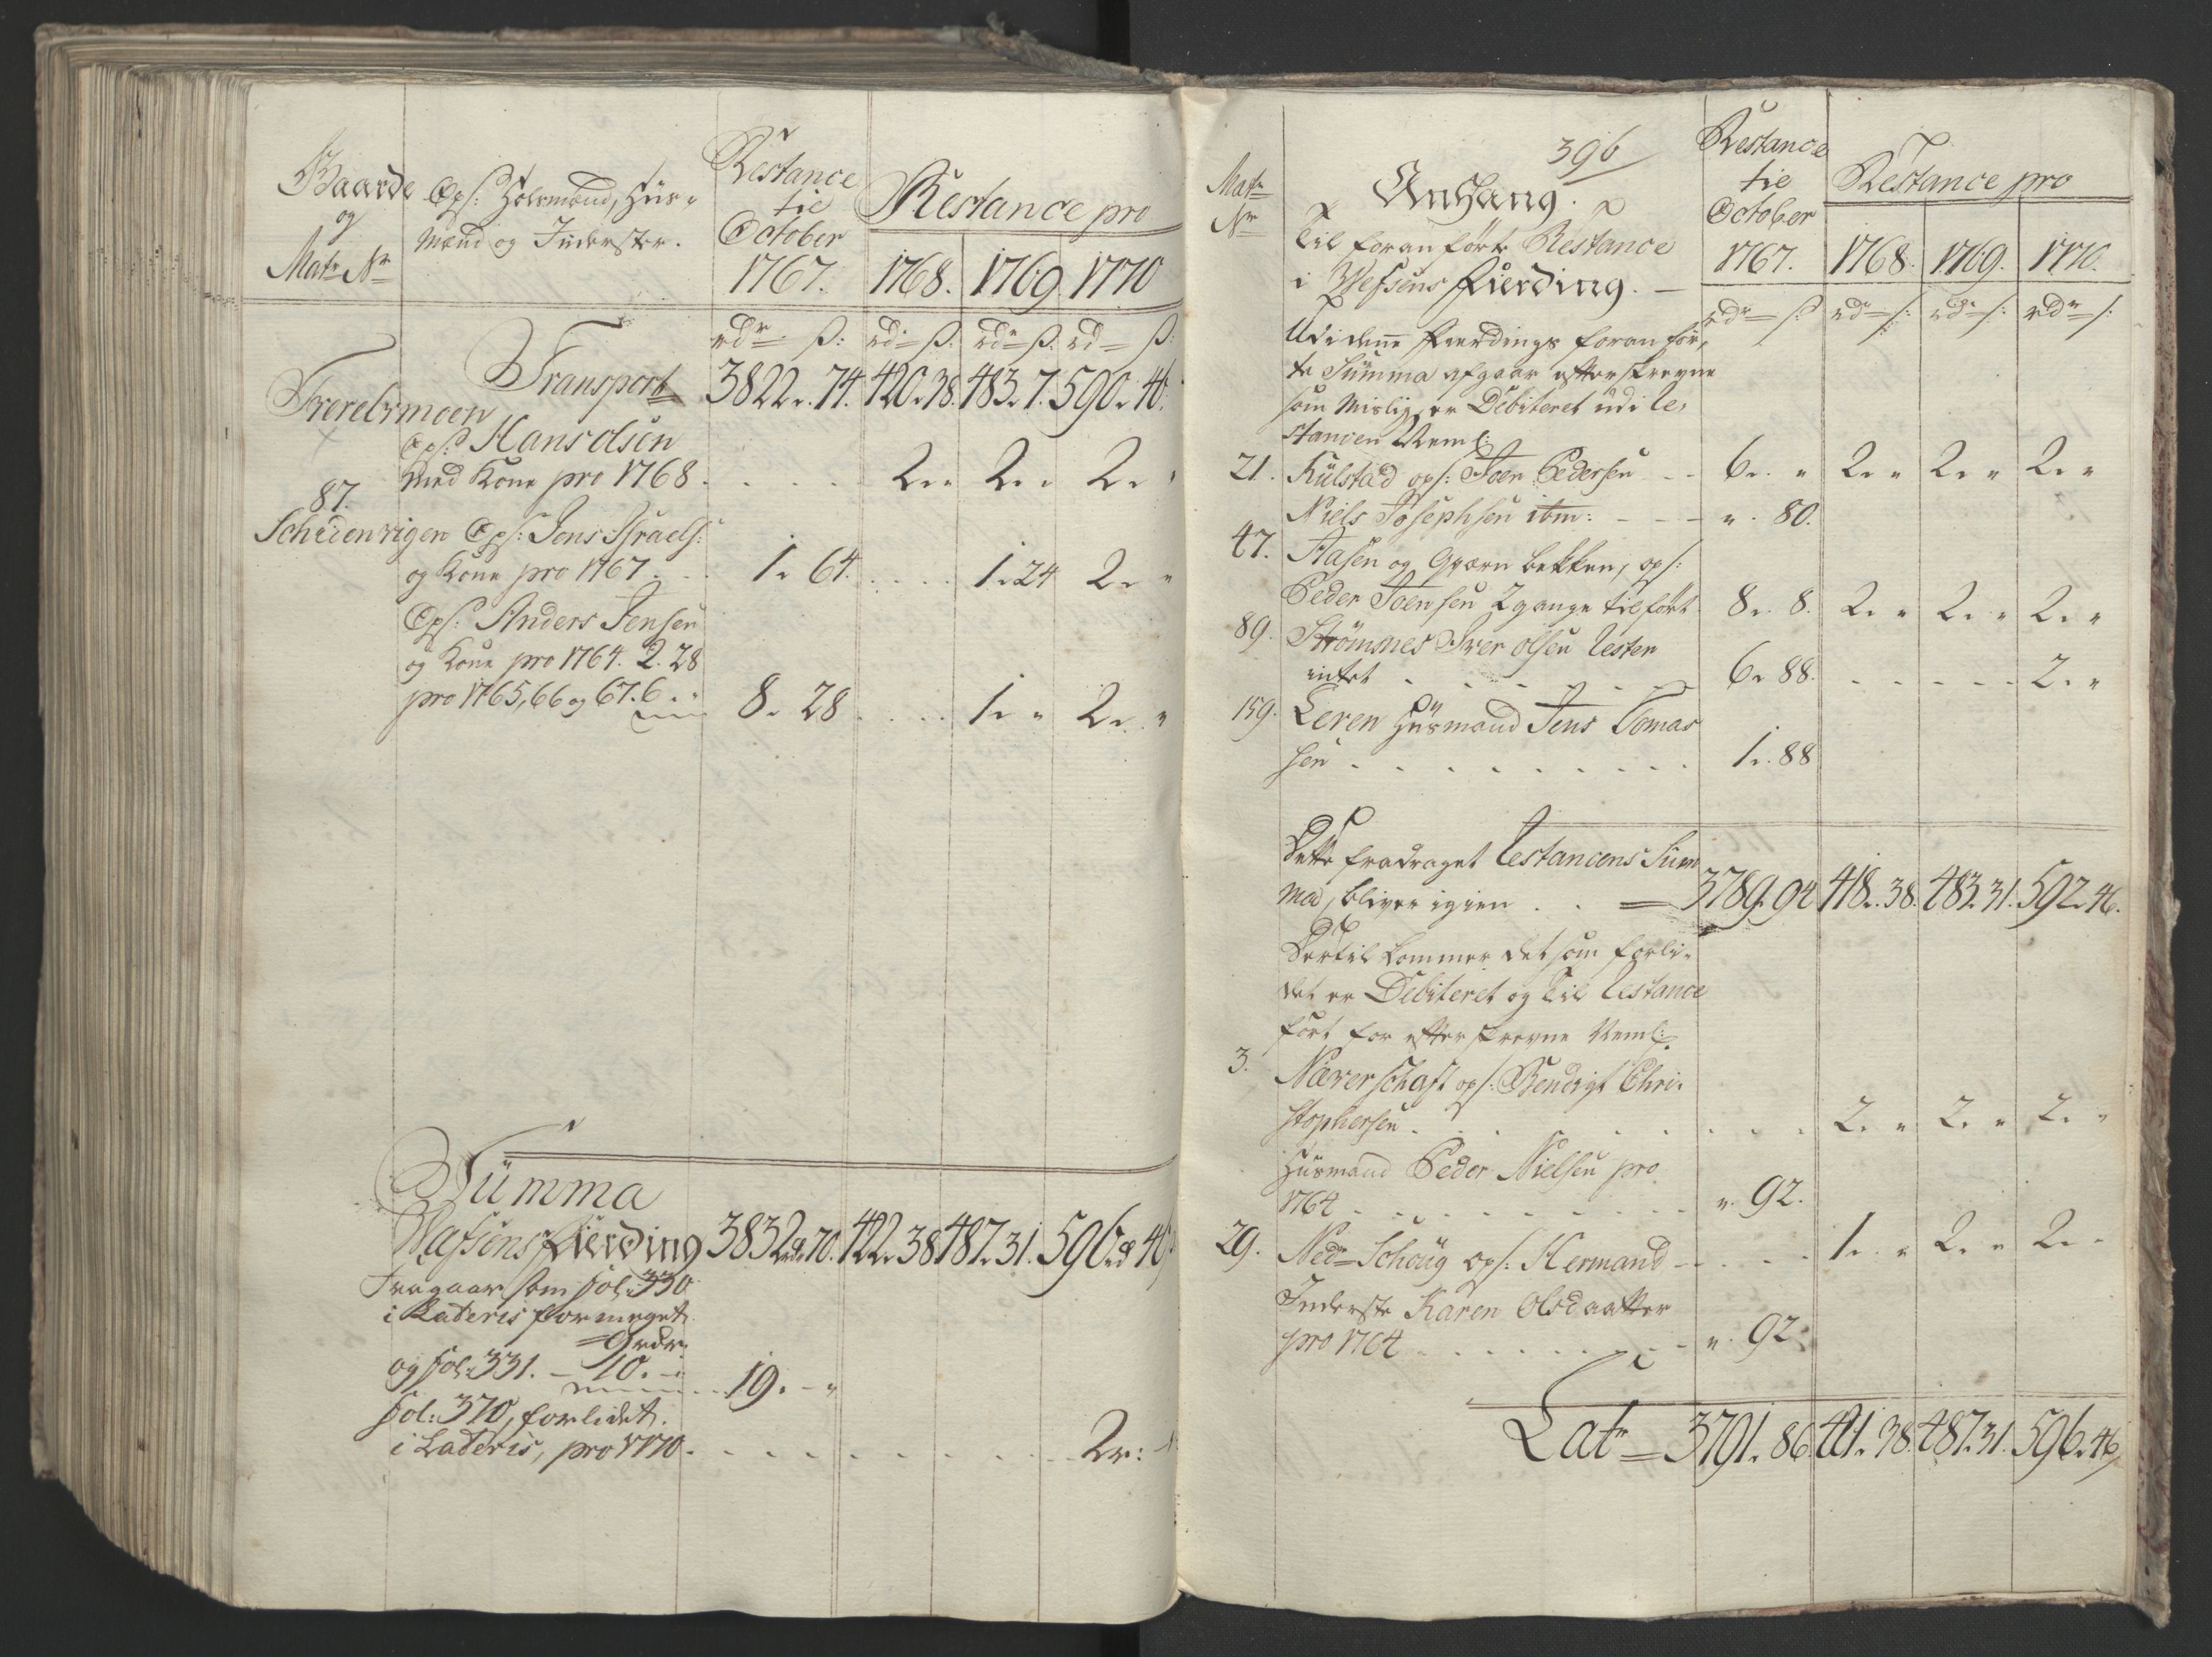 Gaarde Ops: Holsmænd, Huus- Restance
og mænd og Inderster. til Restance pro
Matr No October
1767. 1768. 1769 1770
rdr ß: rd ß. rd ß. rd ß:
Transport 3822. 74. 420. 38. 483. 7. 590. 46.
Ops: Hans Olsen
med Kone pro 1768. . . . 2 " 2 " 2 "
87.
Ops: Jens Israels:
og Kone pro 1767. . . 1. 64. . . . 1. 24 2 "
Ops: Anders Jensen
og Kone pro 1764. 2. 28
pro 1765, 66 og 67. 6. " 8. 28 . . . 1. " 2. "
Summa
Wefsens Fierding 3832. 70. 422. 38 487. 31. 596. 46
Fragaar som fol: 330
i Lateris formeget
9 rdr.
og fol: 331. - 10. - . . 19. - "
fol: 370, forlidet.
i Lateris, pro 1770. . . . . . . . 2 r:
396
Matr Anhang. Restance
Nr til Restance pro
Til foranførte Restance October
i Wefsens Fierding. 1767. 1768. 1769. 1770.
rdr ß rd ß: rd ß: rdr ß:
Udi denne Fierdings foranfør-
te Summa afgaar efterskrevne
som Mislig er Debiteret udi Re-
stancen Neml:
21. Kulstad ops: Joen Pedersen - - 6. " 2. " 2. " 2. "
Niels Josephsen itm: - - - ". 80.
47. Aasen og Qværnbekken, ops:
Peder Joensen 2 gange tilført 8. 8. 2. " 2. " 2. "
89. Strömsnes Iver Olsen Rester
intet . . . . . . 6. 88. . . . . . 2. "
159. Leren Huusmand Jens Tomas
sen . . . . . . . . . 1. 88
Dette fradraget Restancens Sum
ma, bliver igien . . 3789. 94 418. 38. 483. 31. 592. 46.
Dertil kommer det som forli-
det er Debiteret og til Restance
ført for efterskrevne Neml:
3. ops: Bendigt Chri-
stophersen . . . . . . . . 2. " 2. " 2. "
Huusmand Peder Nielsen pro
1764 . . . . . . . . . ". 92.
29. Nedr Schoug ops: Hermand - . . . . 1. " 2. " 2. "
Inderste Karen Olsdaatter
pro 1764 . . . . . . . ". 92.
Latr 3791. 86. 421. 38. 487. 31. 596. 46